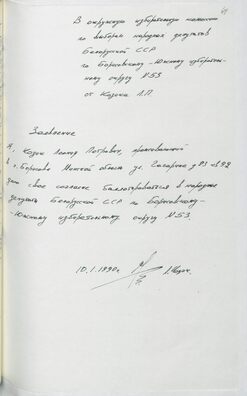 В окружную избирательную комиссию
по выборам народных депутатов
Белорусской ССР
по Борисовскому-Южному избиратель-
ному округу №53
от Козика Л.П.
Заявление
Я, Козик Леонид Петрович, проживающий
в г. Борисове Минской области ул. Гагарина д.
даю свое согласие баллотироваться в народные
депутаты Белорусской ССР по Борисовскому-
-Южному избирательному округу №53.
10.1.1990г. Л. Козик